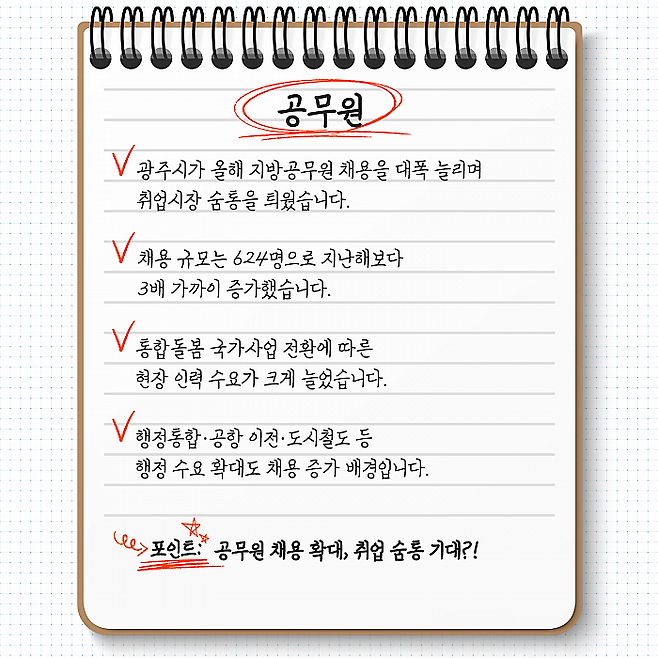 공무원
광주시가 올해 지방공무원 채용을 대폭 늘리며
취업시장 숨통을 틔웠습니다.
채용 규모는 624명으로 지난해보다
3배 가까이 증가했습니다.
통합돌봄 국가사업 전환에 따른
현장 인력 수요가 크게 늘었습니다.
행정통합·공항 이전·도시철도 등
행정 수요 확대도 채용 증가 배경입니다.
포인트: 공무원 채용 확대, 취업 숨통 기대?!